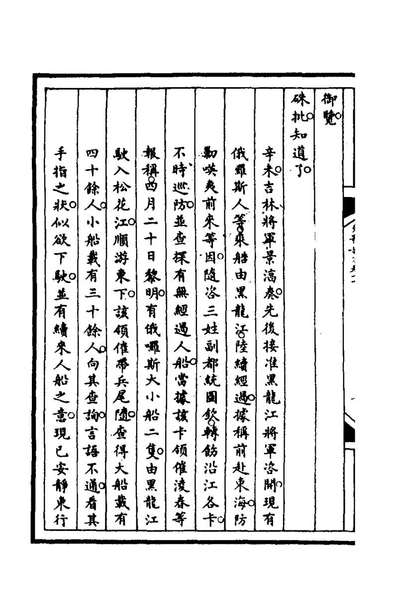 御覽
硃批知道了
辛未吉林將軍景淳奏先後接准黑龍江將軍咨開現有
俄羅斯人等乘船由黑龍江陸續經過據稱前赴東海防
勦𠸄夷前來等因隨咨三姓副都統圖欽轉飭沿江各卡
不時巡防並查探有無經過人船當據該卡領催淩春等
報稱四月二十日黎明有俄囉斯大小船二隻由黑龍江
駛入松花江順游東下該領催帶兵尾隨查得大船載有
四十餘人小船載有三十餘人向其查詢言語不通看其
手指之狀似欲下駛並有續來人船之意現已安靜東行